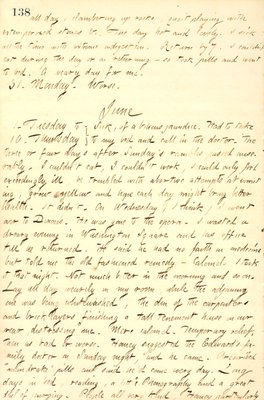 138
all day, clambering up rocks, quoit playing with
water-worn stones &c. Fine day hot and lovely. I sick
all the time with violent indigestion. Return by 7. I couldn't
eat during the day or on returning — so took pills and went
to bed. A weary day for me!
31. Monday. Worse.
June
1. Tuesday to Sick, of a bilious jaundice. Had to take
10. Thursday to my bed and call in the doctor. The
three or four days after Sunday's ramble used miser-
ably. I couldn't eat, I couldn't work, I could only feel
exceedingly ill. So I trifled with abortive attempts at writ-
ing, and hope each day might bring better
health. It didn't. On Wednesday, I think, I went
over to He was gone to the opera. I waited a
dreary evening in Washington Square and his office
till he returned. He said he had no faith in medicine
but told me the old fashioned remedy — Calomel. I took
it that night. Not much better in the morning and so on.
Lay all day wearily in my room while the adjoining
one was being whitewashed, the din of the carpenters
and bricklayers finishing a tall tenement house in our
rear distressing me. More calomel. Temporary relief,
then as bad or worse. Haney suggested the Edwards' fa-
mily doctor on Sunday night, and he came. Prescribed
pills and said he'd come every day. Long
days in bed, reading, a
deal of purging. People all very kind. Haney